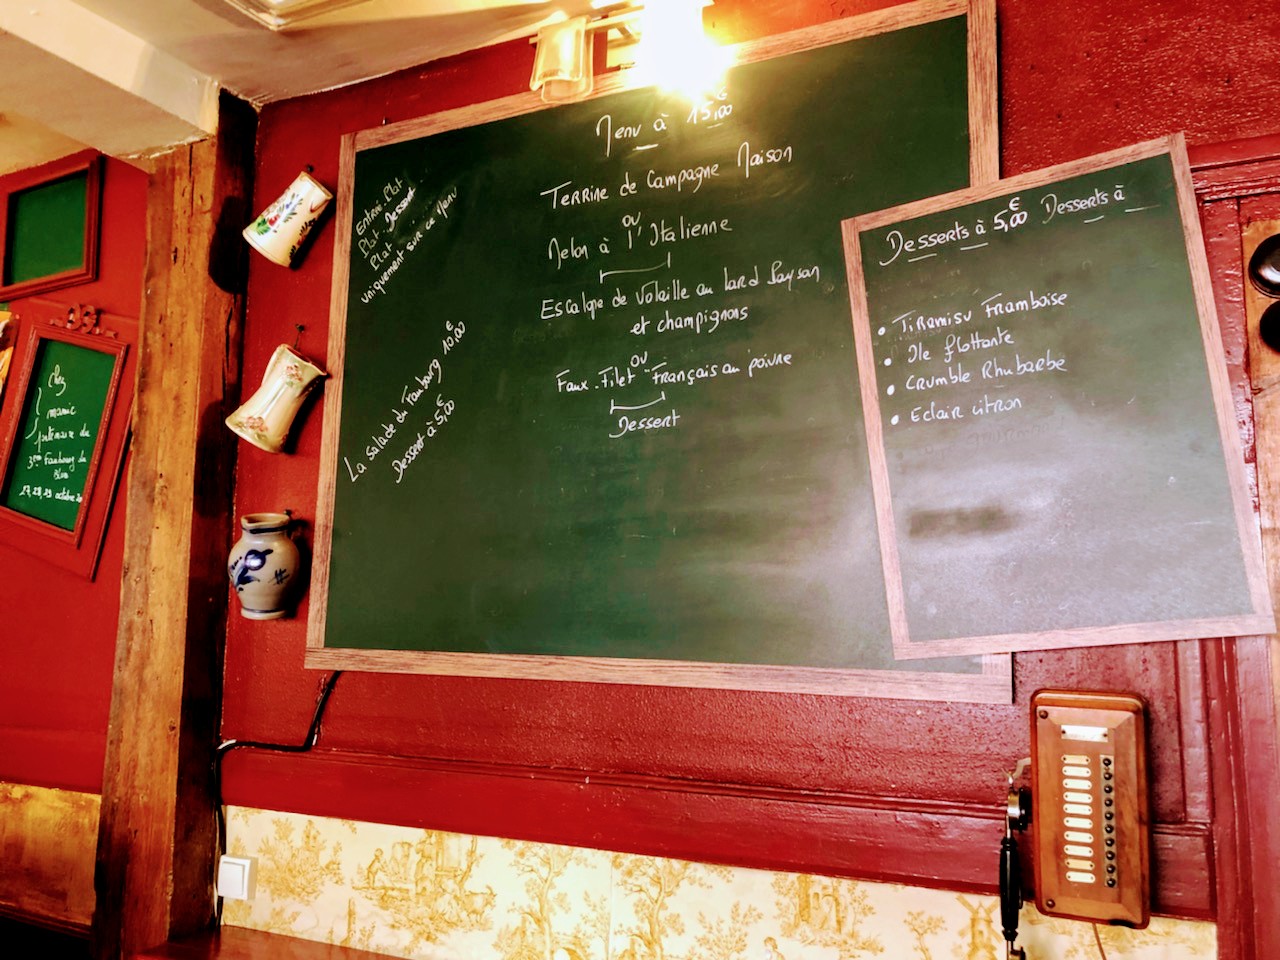 Menu à 15,00€
Terrine de Campagne Maison
ou
Melon à l'Italienne
Escalope de Volaille au lard Paysan
et champignons
ou
Faux-Filet Français au poivre
Dessert
Entrée. Plat
Plat. Dessert
Plat
uniquement sur ce Menu
La salade du Faubourg 10,00€
Dessert à 5,00€
Desserts à 5,00€ Desserts à
• Tiramisu Framboise
• Ile flottante
• Crumble Rhubarbe
• Eclair citron
chez
mamie
du
3ème Faubourg du
27, 28, 29 octobre